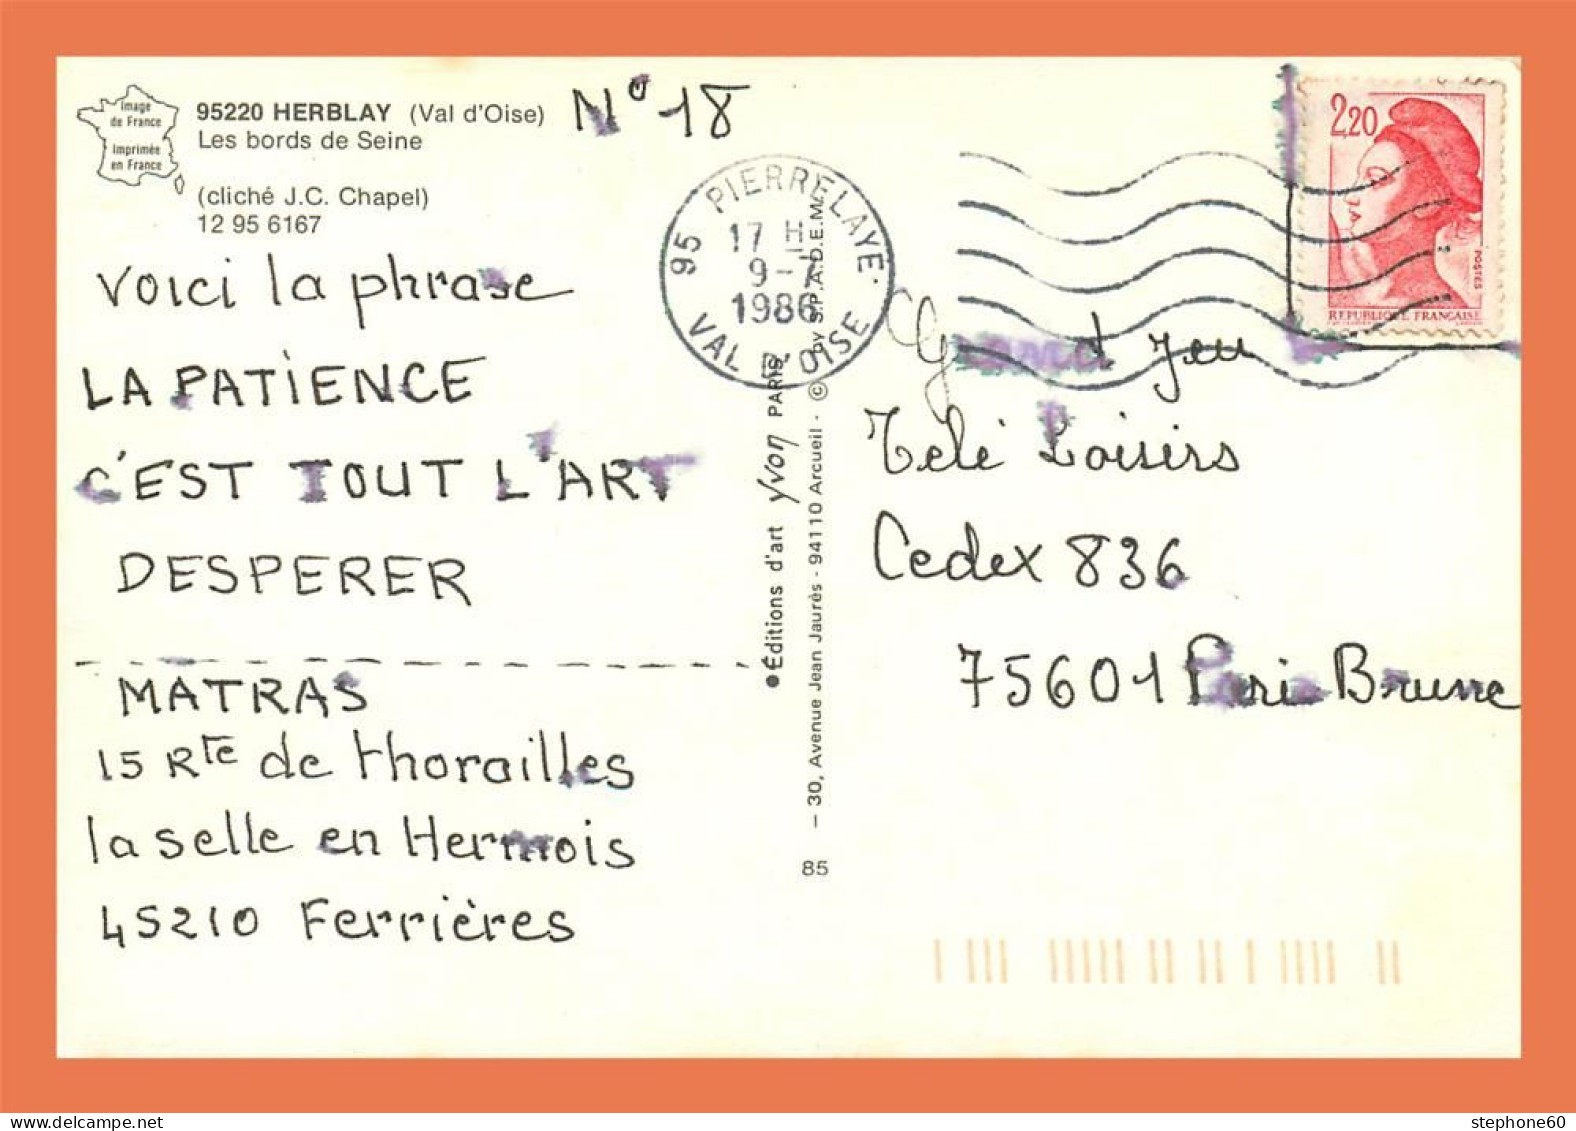 Image
de France
Imprimée
en France
95220 HERBLAY (Val d'Oise)
Les bords de Seine
(cliché J.C. Chapel)
12 95 6167
N° 18
Voici la phrase
LA PATIENCE
C'EST TOUT L'ART
DESPERER
MATRAS
15 Rte de thorailles
la selle en Hermois
45210 Ferrières
95 PIERRELAYE
17 H
9-7
1986
VAL D'OISE
●Éditions d'art yvon PARIS
– 30, Avenue Jean Jaurès - 94110 Arcueil - © by S.P.A.D.E.M.
85
2,20
POSTES
REPUBLIQUE FRANÇAISE
Grand Jeu
Télé Loisirs
Cedex 836
75601 Paris Brune
stephone60